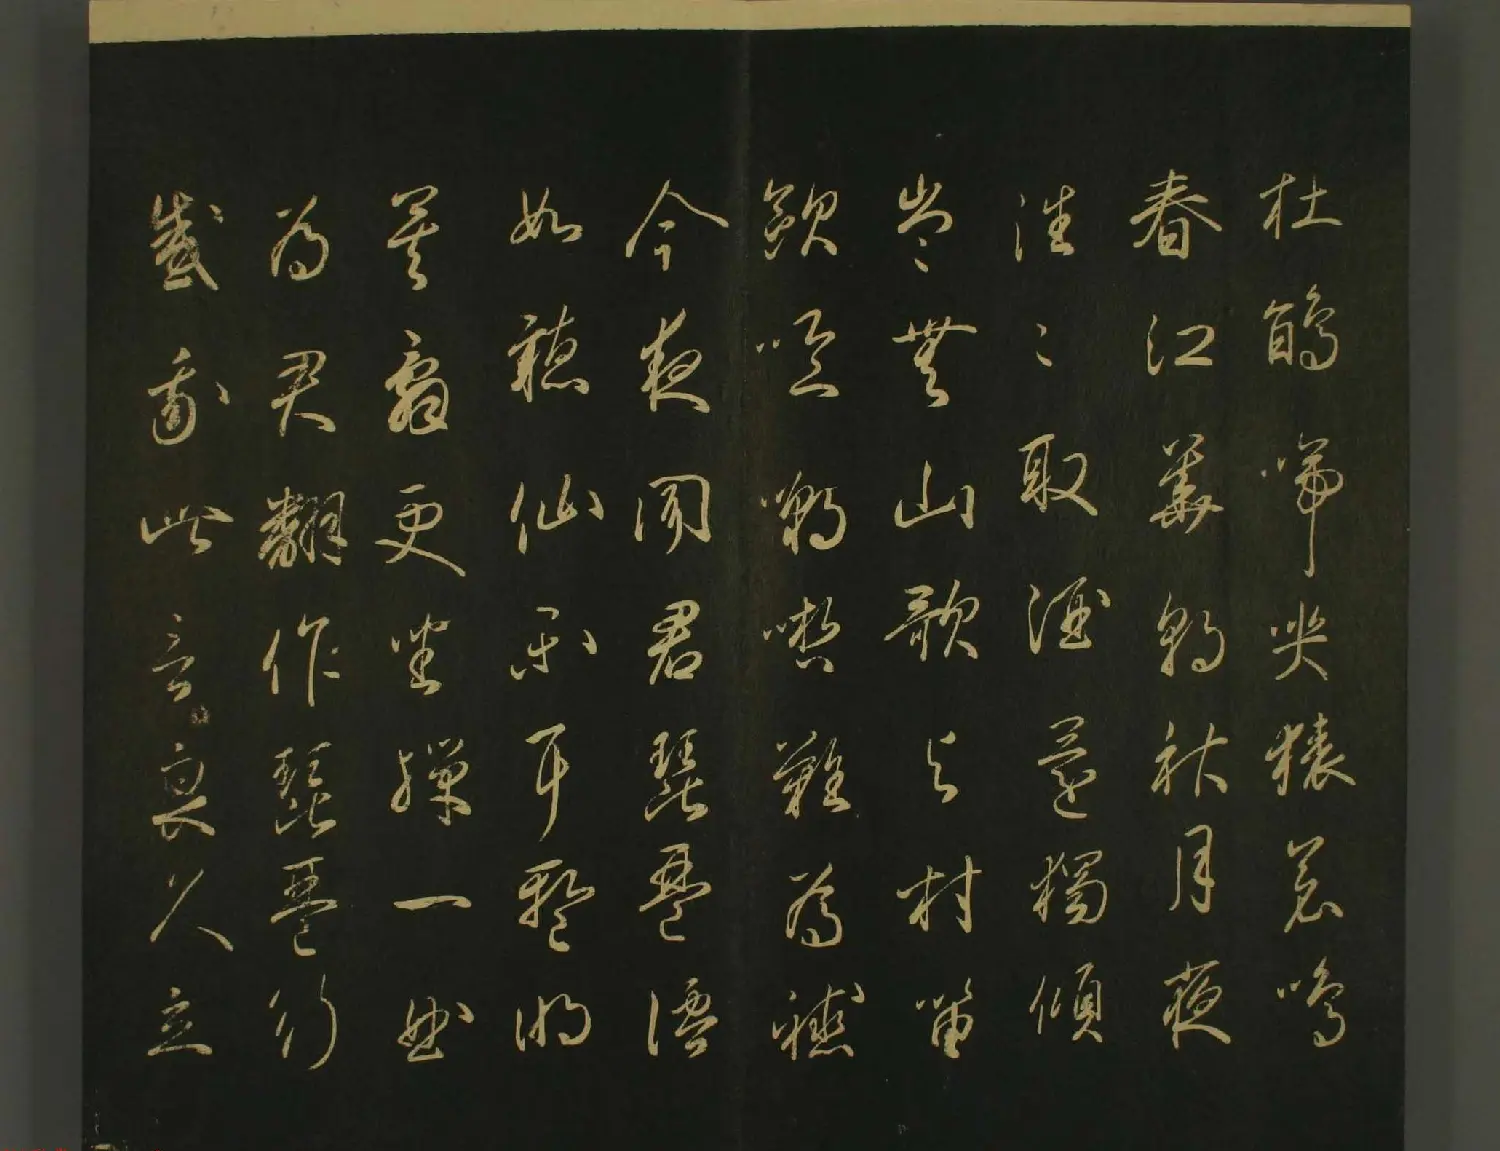 杜鵑啼哭猿哀鳴
春江華朝秋月夜
往〻取酒還獨傾
豈無山歌與村笛
歐啞嘲哳難為聽
今夜聞君琵琶語
如聽仙樂耳暫明
莫辭更坐彈一曲
為君翻作琵琶行
感我此言良久立